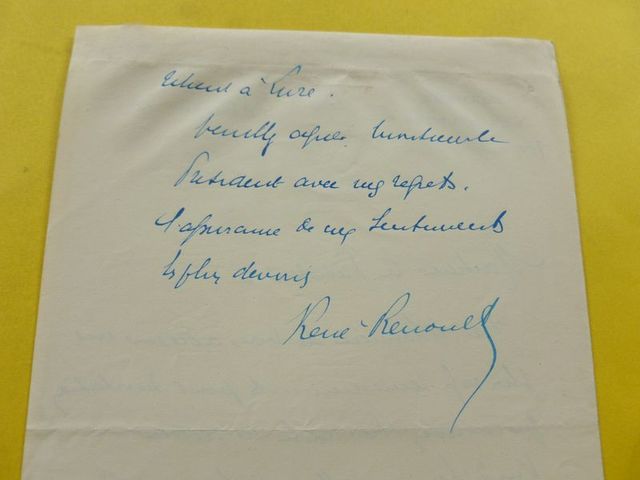 à Lure.
Veuillez agréer Monsieur le
Président avec mes regrets.
l'assurance de mes sentiments
les plus dévoués
René Renoult